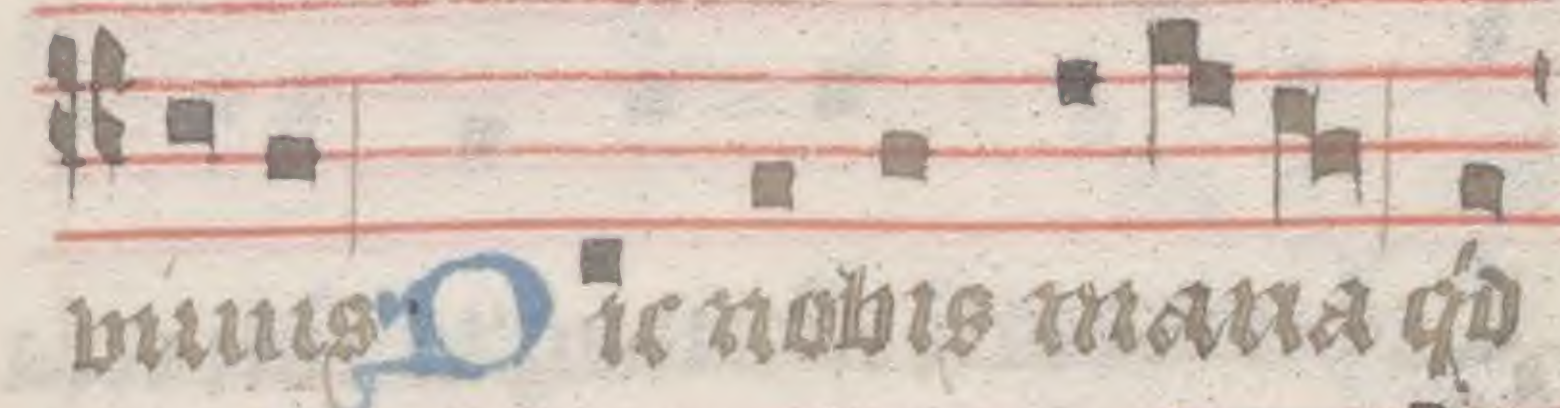 viuus Dic nobis maria qͥd